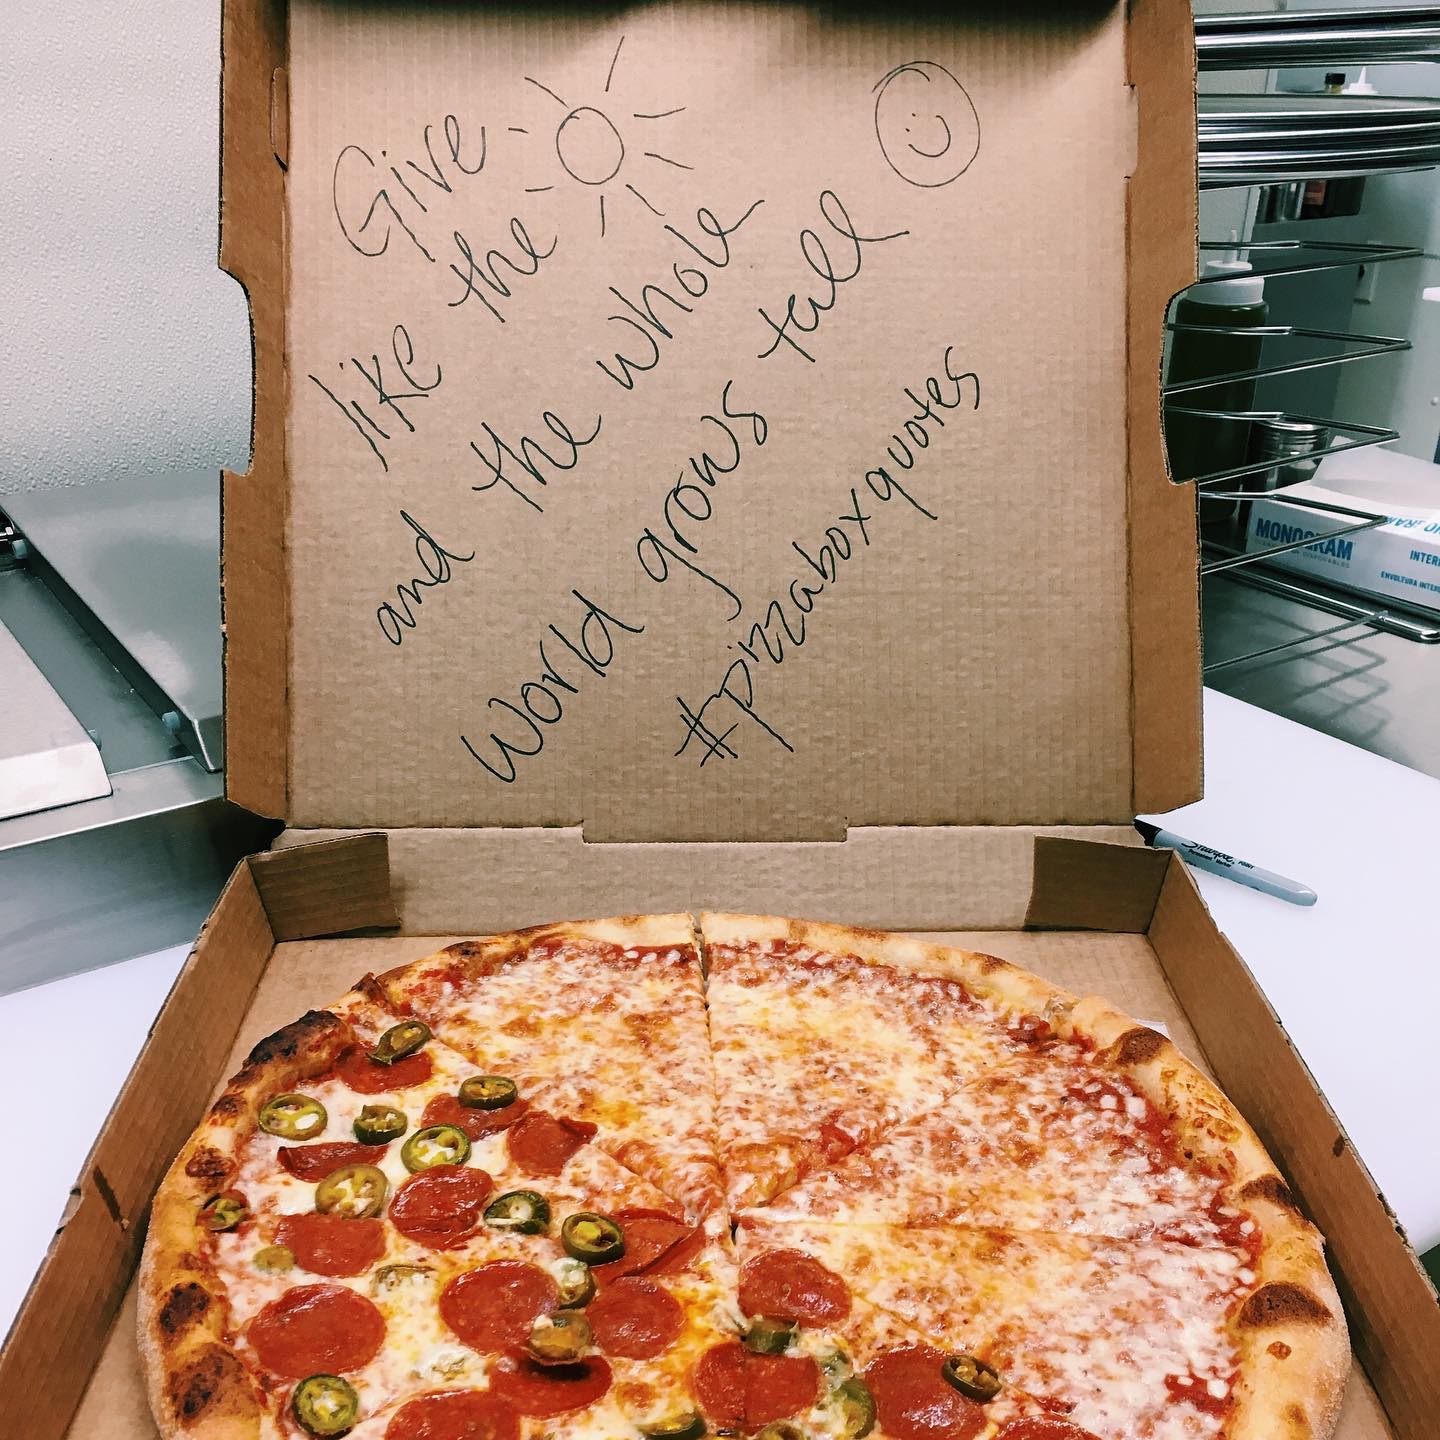 Give
like the
and the whole
World grows tall
#pizzaboxquotes
MONOGRAM
Sharpie